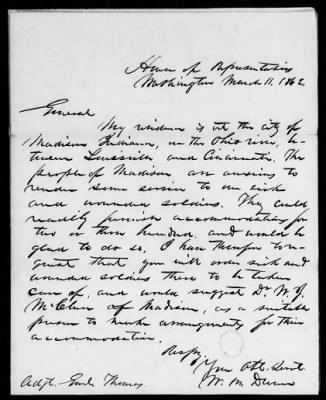 House of Representatives
Washington March 11, 1862
General
My residence is at the city of
Madison Indiana, on the Ohio river, be-
tween Louisville and Cincinnati. The
people of Madison are anxious to
render some service to our sick
and wounded soldiers. They could
readily furnish accommodations for
two or three hundred, and would be
glad to do so, I have therefore to re-
quest that you will order sick and
wounded soldiers there to be taken
care of, and would suggest Dr. W. G.
McClure of Madison, as a suitable
person to make arrangements for their
accommodation.
Respy,
Your Obt. Servt.
W. M. Dunn
Adjt. Genl. Thomas.